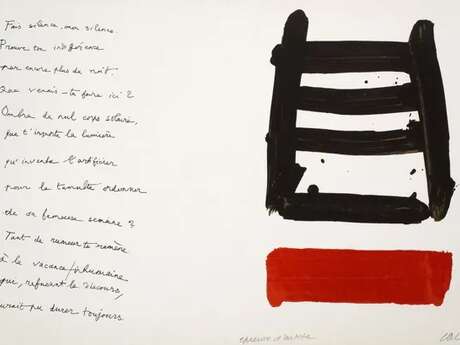 Fais silence, mon silence.
Prouve ton indifférence
par encore plus de nuit.
Que venais-tu faire ici ?
Ombre de nul corps solaire,
que t'importe la lumière
qu'inventa l'artificier
pour le tumulte ordonner
de sa fameuse semaine ?
Tant de rumeur te ramène
à la vacance
que, refusant le discours,
durer toujours
épreuve d'artiste